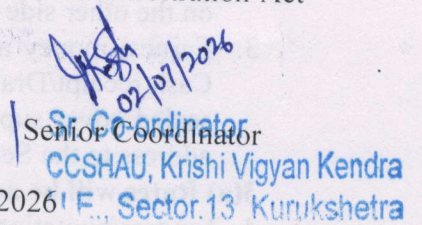 02/07/2026
Senior Coordinator
Sr. Co-ordinator
CCSHAU, Krishi Vigyan Kendra
2026 I.E., Sector.13 Kurukshetra